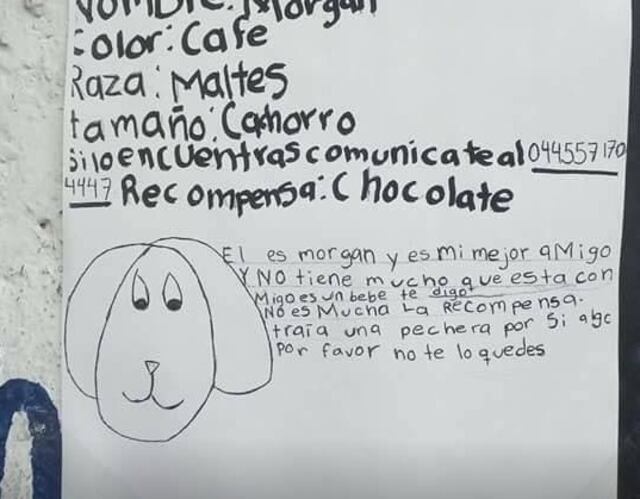 NOMBRE: Morgan
Color: Cafe
Raza: Maltes
tamaño: Cahorro
Si lo encuentras comunicate al 044557170
4447 Recompensa: Chocolate
El es morgan y es mi mejor aMigo
Y NO tiene mucho que esta con
Migo es un bebe te digo
No es Mucha La Recompensa.
traia una pechera por Si algo
Por favor no te lo quedes